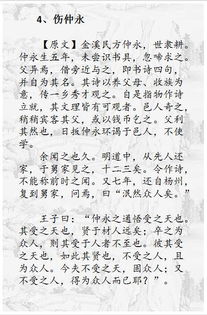 4、伤仲永
【原文】金溪民方仲永，世隶耕。
仲永生五年，未尝识书具，忽啼求之。
父异焉，借旁近与之，即书诗四句，
并自为其名。其诗以养父母、收族为
意，传一乡秀才观之。自是指物作诗
立就，其文理皆有可观者。邑人奇之，
稍稍宾客其父，或以钱币乞之。父利
其然也，日扳仲永环谒于邑人，不使
学。
余闻之也久。明道中，从先人还
家，于舅家见之，十二三矣。令作诗，
不能称前时之闻。又七年，还自扬州，
复到舅家，问焉，曰“泯然众人矣。”
王子曰：“仲永之通悟受之天也。
其受之天也，贤于材人远矣；卒之为
众人，则其受于人者不至也。彼其受
之天也，如此其贤也，不受之人，且
为众人。今夫不受之天，固众人；又
不受之人，得为众人而已耶？”。